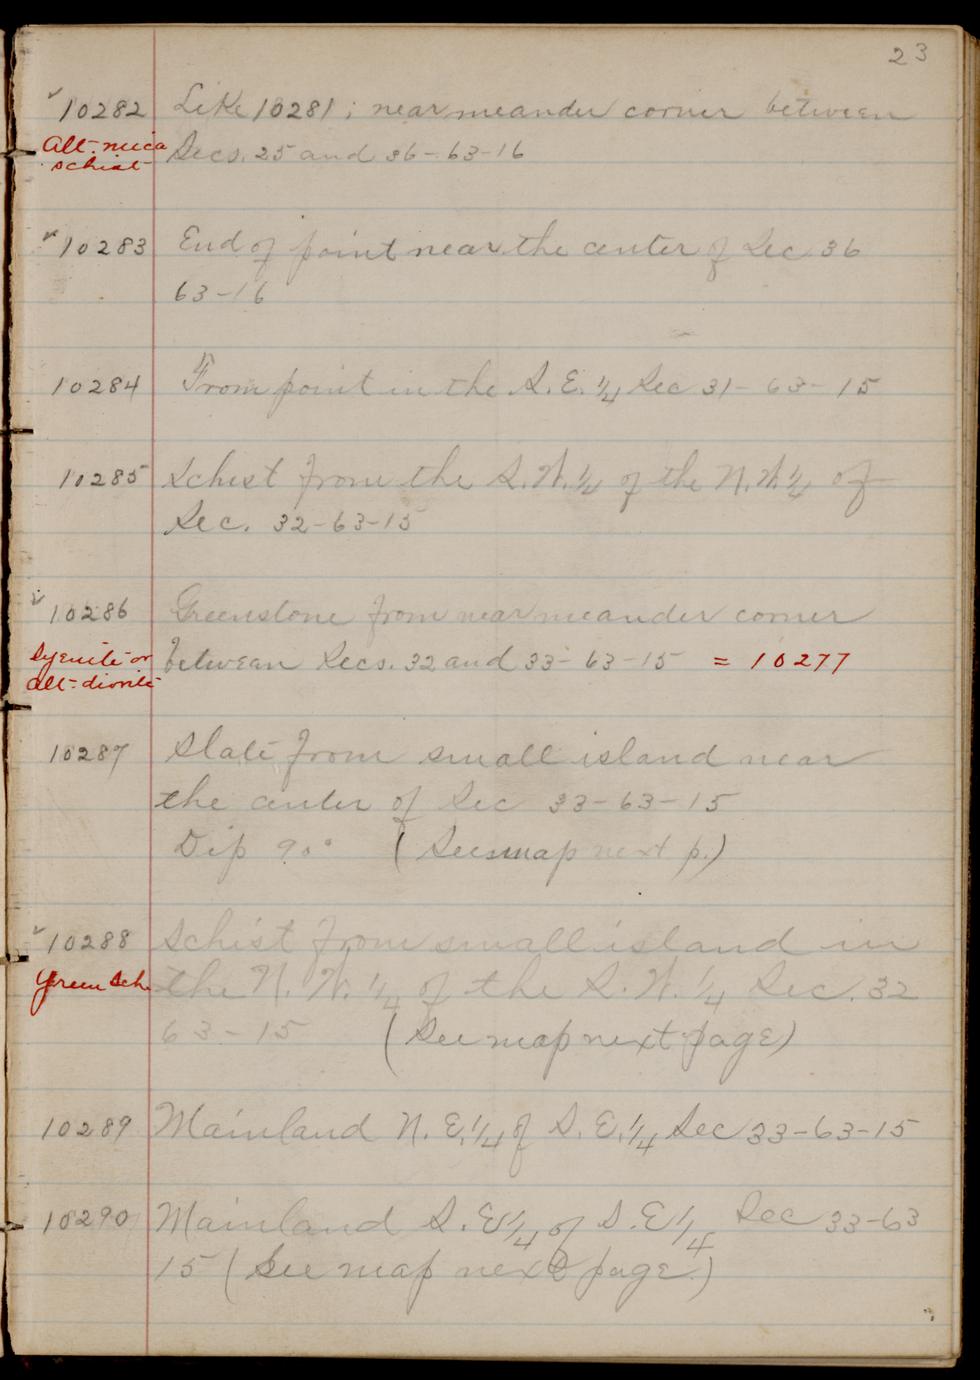 23
10282 Like 10281; near meander corner between
Alt. mica Secs. 25 and 36-63-16
schist
10283 End of point near the center of Sec 36
63-16
10284 From point in the S. E. 1/4 Sec 31-63-15
10285 Schist from the S. W. 1/4 of the N. W. 1/4 of
Sec. 32-63-15
10286 Greenstone from near meander corner
Syenite or between Secs. 32 and 33-63-15 = 10277
alt-diorite
10287 Slate from small island near
the center of Sec 33-63-15
Dip 90° (See map next p.)
10288 Schist from small island in
Green Sch the N. W. 1/4 of the S. W. 1/4 Sec. 32
63-15 (See map next page)
10289 Mainland N. E. 1/4 of S. E. 1/4 Sec 33-63-15
10290 Mainland S. E 1/4 of S. E 1/4 Sec 33-63
15 (See map next page.)